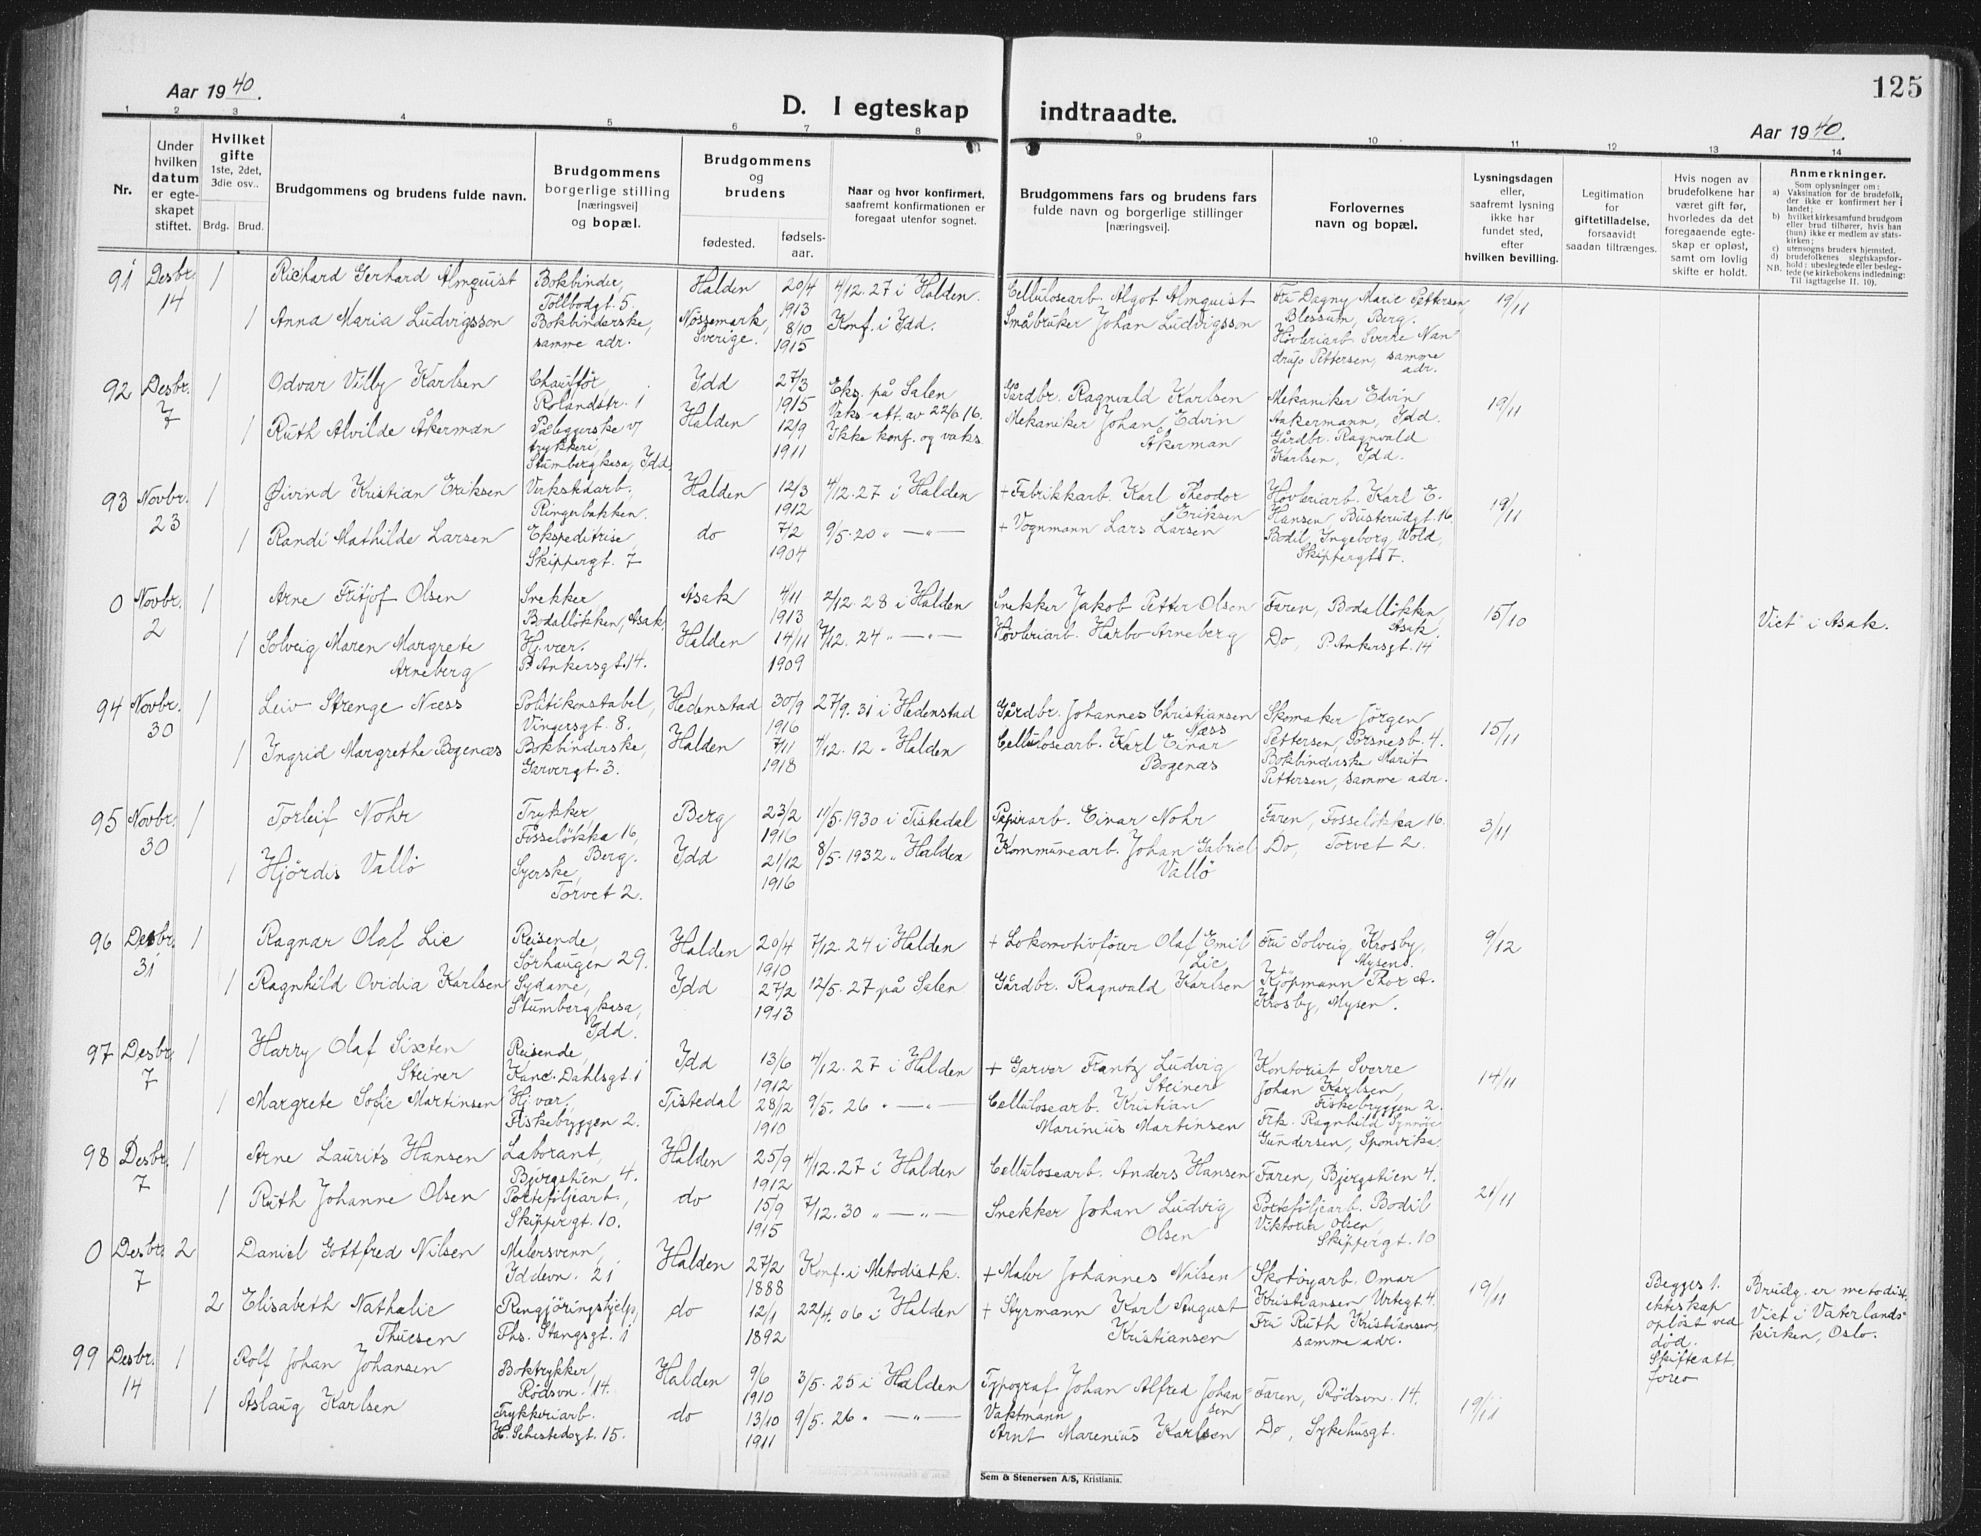 125
Aar 1940.
D. I egteskap indtraadte.
Aar 1940.
1 2 3 4 5 6 7 8 9 10 11 12 13 14
Nr.
Under hvilken datum er egteskapet stiftet.
Hvilket gifte
1ste, 2det, 3die osv..
Brdg. Brud.
Brudgommens og brudens fulde navn.
Brudgommens borgerlige stilling [næringsvei] og bopæl.
Brudgommens og brudens
fødested. fødsels-aar.
Naar og hvor konfirmert, saafremt konfirmationen er foregaat utenfor sognet.
Brudgommens fars og brudens fars fulde navn og borgerlige stillinger [næringsvei].
Forlovernes navn og bopæl.
Lysningsdagen eller, saafremt lysning ikke har fundet sted, efter hvilken bevilling.
Legitimation for giftetilladelse, forsaavidt saadan tiltrænges.
Hvis nogen av brudefolkene har været gift før, hvorledes da det foregaaende egteskap er opløst, samt om lovlig skifte er holdt.
Anmerkninger.
Som oplysninger om:
a) Vaksination for de brudefolk, der ikke er konfirmert her i landet;
b) hvilket kirkesamfund brudgom eller brud tilhører, hvis han (hun) ikke er medlem av statskirken;
c) utensogns bruders hjemsted.
d) brudefolkenes slegtskapsforhold: ubeslegtede eller beslegtede (se kirkebokens indledning: Til iagttagelse II. 10).
NB.
91 Desbr. 14 1 Richard Gerhard Almquist Bokbinder, Tollbodgt. 5 Halden 20/4 1913 4/12.27 i Halden. Cellulosearb. Algot Almquist Fru Dagny Marie Pettersen, Blessum, Berg. 19/11
1 Anna Maria Ludvigsson Bokbinderske, samme adr. Nössemark, Sverige. 8/10 1915 Konf. i Idd. Småbruker Johan Ludvigsson Høvleriarb. Sverre Nandrup Pettersen, samme adr.
92 Desbr. 7 1 Odvar Villy Karlsen Chauffør, Rolandstr. 1 Idd 27/3 1915 Eks. på Salen Vaks-att. av 22/6.16. Gårdbr. Ragnvald Karlsen Mekaniker Edvin Aakermann, Idd. 19/11
1 Ruth Alvilde Åkerman Pålegger­ske v/ trykkeri, Stumbergkasa, Idd. Halden 12/9 1911 Ikke konf. og vaks. Mekaniker Johan Edvin Åkerman Gårdbr. Ragnvald Karlsen, Idd.
93 Novbr. 23 1 Øivind Kristian Eriksen Verkstedarb., Ringerbakken. Halden 12/3 1912 4/12.27 i Halden + Fabrikkarb. Karl Theodor Eriksen Høvleriarb. Karl E. Hansen, Busterudgt. 16 19/11
1 Randi Mathilde Larsen Ekspeditrise, Skippergt. 7 do 7/2 1904 9/5.20 " — " — + Vognmann Lars Larsen Bodil Ingeborg Wold, Skippergt. 7.
0 Novbr. 2 1 Arne Fritjof Olsen Snekker Bodalløkken, Asak Asak 4/11 1913 2/12.28 i Halden Snekker Jakob Petter Olsen Faren, Bodalløkken, Asak. 15/10 Viet i Asak.
1 Solveig Maren Margrete Arneberg Hj.vær. P. Ankersgt. 14. Halden 14/11 1909 7/12.24 " — " — Høvleriarb. Harbo Arneberg Do, P. Ankersgt. 14
94 Novbr. 30 1 Leiv Strenge Næss Politikonstabel, Vingersgt. 8. Hedenstad 30/9 1916 27/9.31 i Hedenstad Gårdbr. Johannes Christiansen Næss Skomaker Jörgen Pettersen, Porsnesb. 4. 15/11
1 Ingrid Margrethe Bogenæs Bokbinderske, Garvergt. 3. Halden 7/11 1918 4/12.12 " Halden Cellulosearb. Karl Einar Bogenæs Bokbinderske Marit Pettersen, samme adr.
95 Novbr. 30 1 Torleif Nohr Trykker, Fosseløkka 16, Berg. Berg 23/2 1916 11/5.1930 i Tistedal Papirarb. Einar Nohr Faren, Fosseløkka 16. 3/11
1 Hjördis Vallö Syerske, Torvet 2. Idd 21/12 1916 8/5.1932 " Halden Kommunearb. Johan Gabriel Vallö Do, Torvet 2.
96 Desbr. 31 1 Ragnar Olaf Lie Reisende, Sørhaugen 29. Halden 20/4 1910 7/12.24 i Halden + Lokomotivfører Olaf Emil Lie Fru Solveig Krosby, Mysen. 9/12
1 Ragnhild Ovidia Karlsen Sydame, Stumbergkasa, Idd. Idd 27/2 1913 12/5.27 på Salen Gårdbr. Ragnvald Karlsen Kjöpmann Thor A. Krosby, Mysen.
97 Desbr. 7 1 Harry Olaf Sixten Steiner Reisende, Kanc. Dahlsgt. 1 Idd 13/6 1912 4/12.27 i Halden + Garver Frantz Ludvig Steiner Kontorist Sverre Johan Karlsen, Fiskebryggen 2. 14/11
1 Margrete Sofie Martinsen Hj.vær. Fiskebryggen 2. Tistedal 28/2 1910 9/5.26 " — " — Cellulosearb. Kristian Marinius Martinsen Frk. Ragnhild Synnöv Gundersen, Sponvika.
98 Desbr. 7 1 Arne Laurits Hansen Laborant, Bjergstien 4. Halden 25/9 1912 4/12.27 i Halden Cellulosearb. Anders Hansen Faren, Bjergstien 4. 21/11
1 Ruth Johanne Olsen Porteföljearb., Skippergt. 10. do 15/9 1915 7/12.30 " — " — Snekker Johan Ludvig Olsen Porteföljearb. Bodil Viktoria Olsen, Skippergt. 10
0 Desbr. 7 2 Daniel Gottfred Nilsen Malersvenn, Iddevn. 21 Halden 27/2 1888 Konf. i Metodistk. + Maler Johannes Nilsen Skotøyarb. Omar Kristiansen Urtegt. 4. 19/11 Begges 1. ekteskap opløst ved død. Skifteatt. forev Brudg. er metodist. Viet i Vaterlandskirken, Oslo.
2 Elisabeth Nathalie Thuesen Rengjöringshjelp, Phs. Stangsgt. 1 do 12/1 1892 22/4.06 i Halden + Styrmann Karl August Kristiansen Fru Ruth Kristiansen, samme adr.
99 Desbr. 14 1 Rolf Johan Johansen Boktrykker, Rødsvn. 14. Halden 9/6 1910 3/5.25 i Halden Typograf Johan Alfred Johansen Faren, Rødsvn. 14. 19/11
1 Aslaug Karlsen Trykkeriarb. H. Schestedsgt. 15. do 13/10 1911 9/5.26 " — " — Vaktmann Arnt Marenius Karlsen Do, Sykehusgt.
Sem & Stenersen A/S, Kristiania.